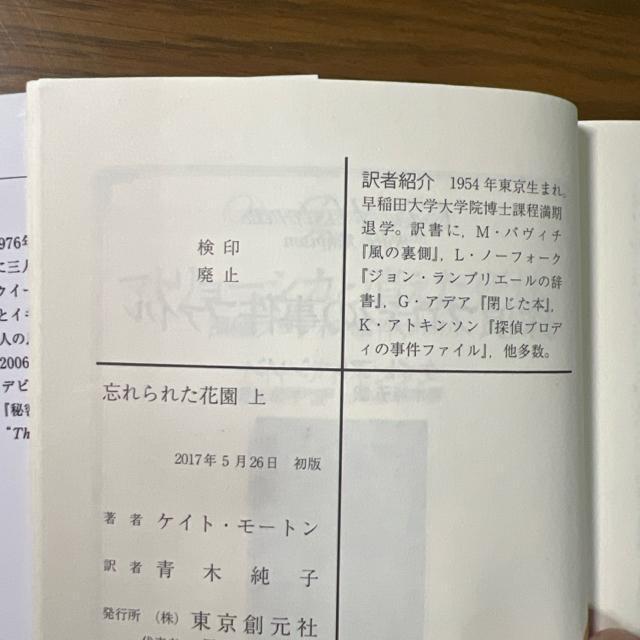 訳者紹介 1954年東京生まれ。
早稲田大学大学院博士課程満期
退学。訳書に，M・パヴィチ
『風の裏側』，L・ノーフォーク
『ジョン・ランプリエールの辞
書』，G・アデア『閉じた本』，
K・アトキンソン『探偵ブロデ
ィの事件ファイル』，他多数。
検印
廃止
忘れられた花園 上
2017年5月26日 初版
著者 ケイト・モートン
訳者 青木純子
発行所 (株) 東京創元社
976年
に三人
ウイー
とイギ
人の
2006
デビ
『秘密
"Th